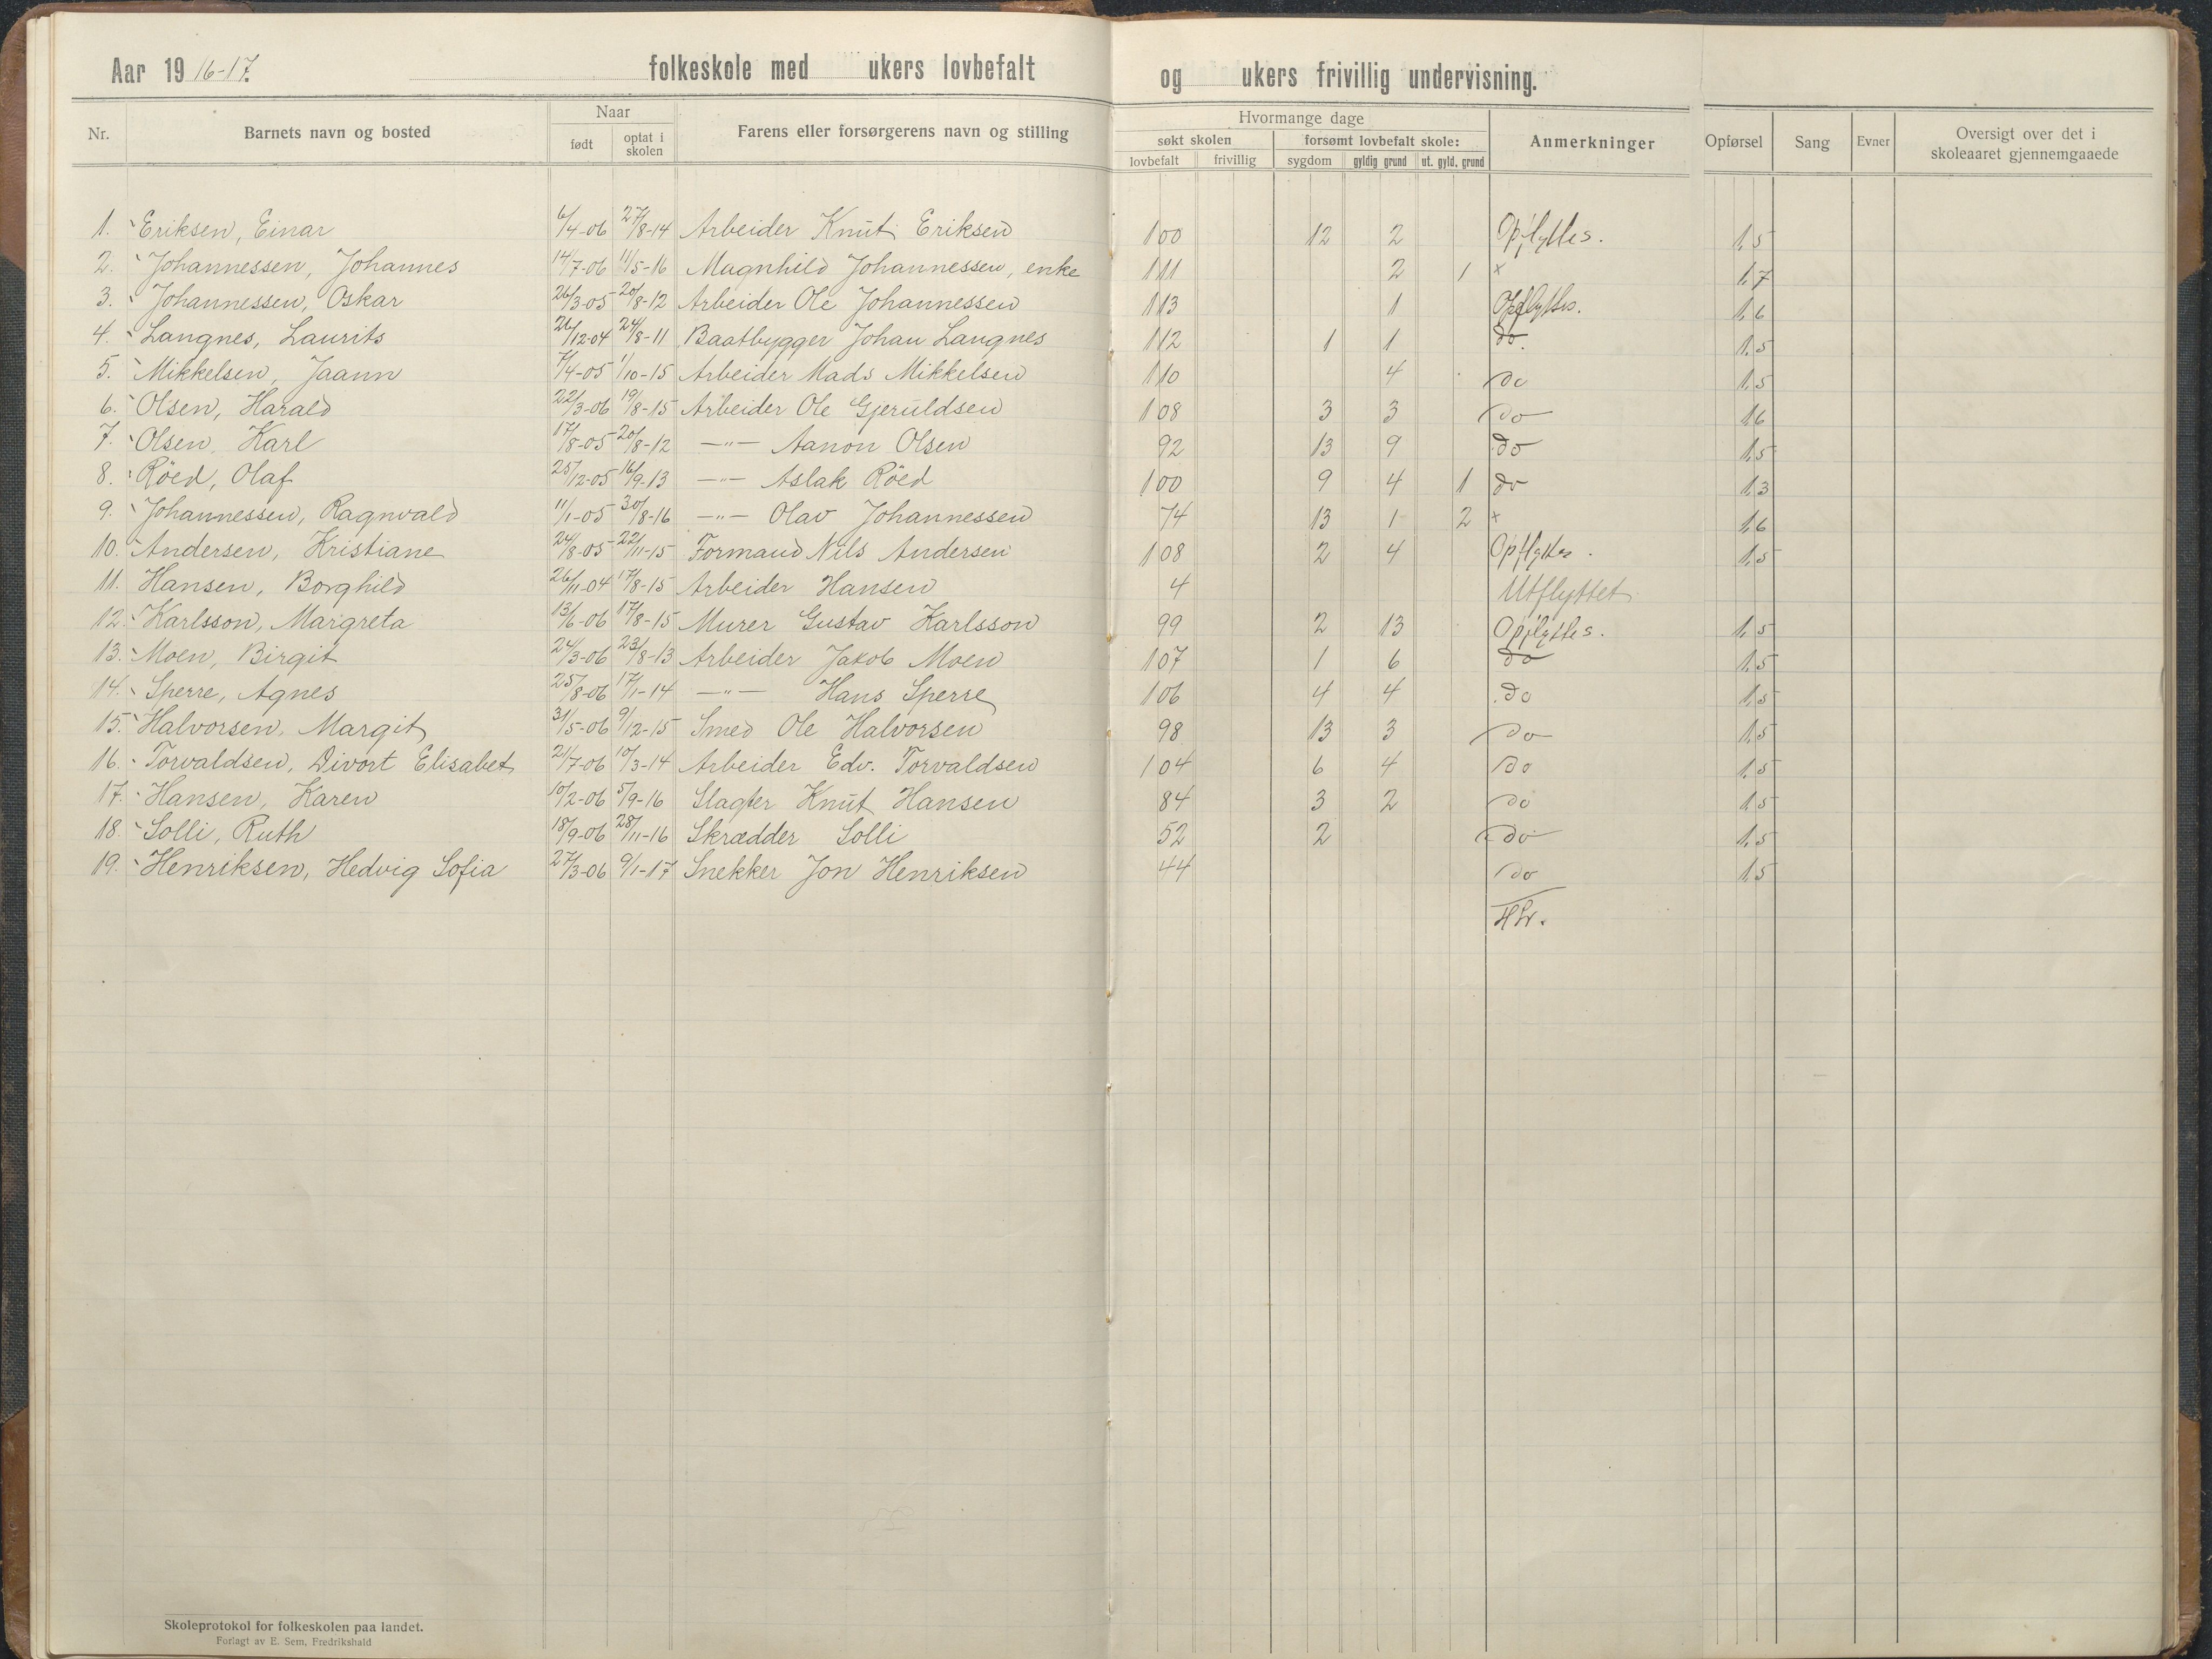 Aar 1916-17. folkeskole med ukers lovbefalt og ukers frivillig undervisning.
Nr. Barnets navn og bosted Naar født optat i skolen Farens eller forsørgerens navn og stilling Hvormange dage søkt skolen lovbefalt frivillig forsømt lovbefalt skole: sygdom gyldig grund ut. gyld. grund Anmerkninger Opførsel Sang Evner Oversigt over det i skoleaaret gjennemgaaede
1. Eriksen, Einar 6/4-06 27/8-14 Arbeider Knut Eriksen 100 12 2 Opflyttes. 1,5
2. Johannessen, Johannes 14/7-06 11/5-16 Magnhild Johannessen, enke 111 2 1 x 1,7
3. Johannessen, Oskar 26/3-05 20/8-12 Arbeider Ole Johannessen 113 1 Opflyttes. 1,6
4. Langnes, Laurits 26/12-04 24/8-11 Baatbygger Johan Langnes 112 1 1 do. 1,5
5. Mikkelsen, Jaann 7/4-05 1/10-15 Arbeider Mads Mikkelsen 110 4 do 1,5
6. Olsen, Harald 22/3-06 19/8-15 Arbeider Ole Gjeruldsen 108 3 3 do 1,6
7. Olsen, Karl 17/8-05 20/8-12 —"— Aanon Olsen 92 13 9 do 1,5
8. Röed, Olaf 25/12-05 16/9-13 —"— Aslak Röed 100 9 4 1 do 1,3
9. Johannessen, Ragnvald 11/1-05 30/8-16 —"— Olav Johannessen 74 13 1 2 x 1,6
10. Andersen, Kristiane 24/8-05 22/11-15 Formand Nils Andersen 108 2 4 Opflyttes. 1,5
11. Hansen, Borghild 26/11-04 17/8-15 Arbeider Hansen 4 Utflyttet
12. Karlsson, Margreta 13/6-06 17/8-15 Murer Gustav Karlsson 99 2 13 Opflyttes. 1,5
13. Moen, Birgit 24/3-06 23/8-13 Arbeider Jakob Moen 107 1 6 do 1,5
14. Sperre, Agnes 25/8-06 17/1-14 —"— Hans Sperre 106 4 4 do 1,5
15. Halvorsen, Margit 31/5-06 9/12-15 Smed Ole Halvorsen 98 13 3 do 1,5
16. Torvaldsen, Divort Elisabet 21/7-06 10/3-14 Arbeider Edv. Torvaldsen 104 6 4 do 1,5
17. Hansen, Karen 10/2-06 5/9-16 Slagter Knut Hansen 84 3 2 do 1,5
18. Solli, Ruth 18/9-06 28/11-16 Skrædder Solli 52 2 do 1,5
19. Henriksen, Hedvig Sofia 27/3-06 9/1-17 Snekker Jon Henriksen 44 do 1,5
Skoleprotokol for folkeskolen paa landet.
Forlagt av E. Sem, Fredrikshald